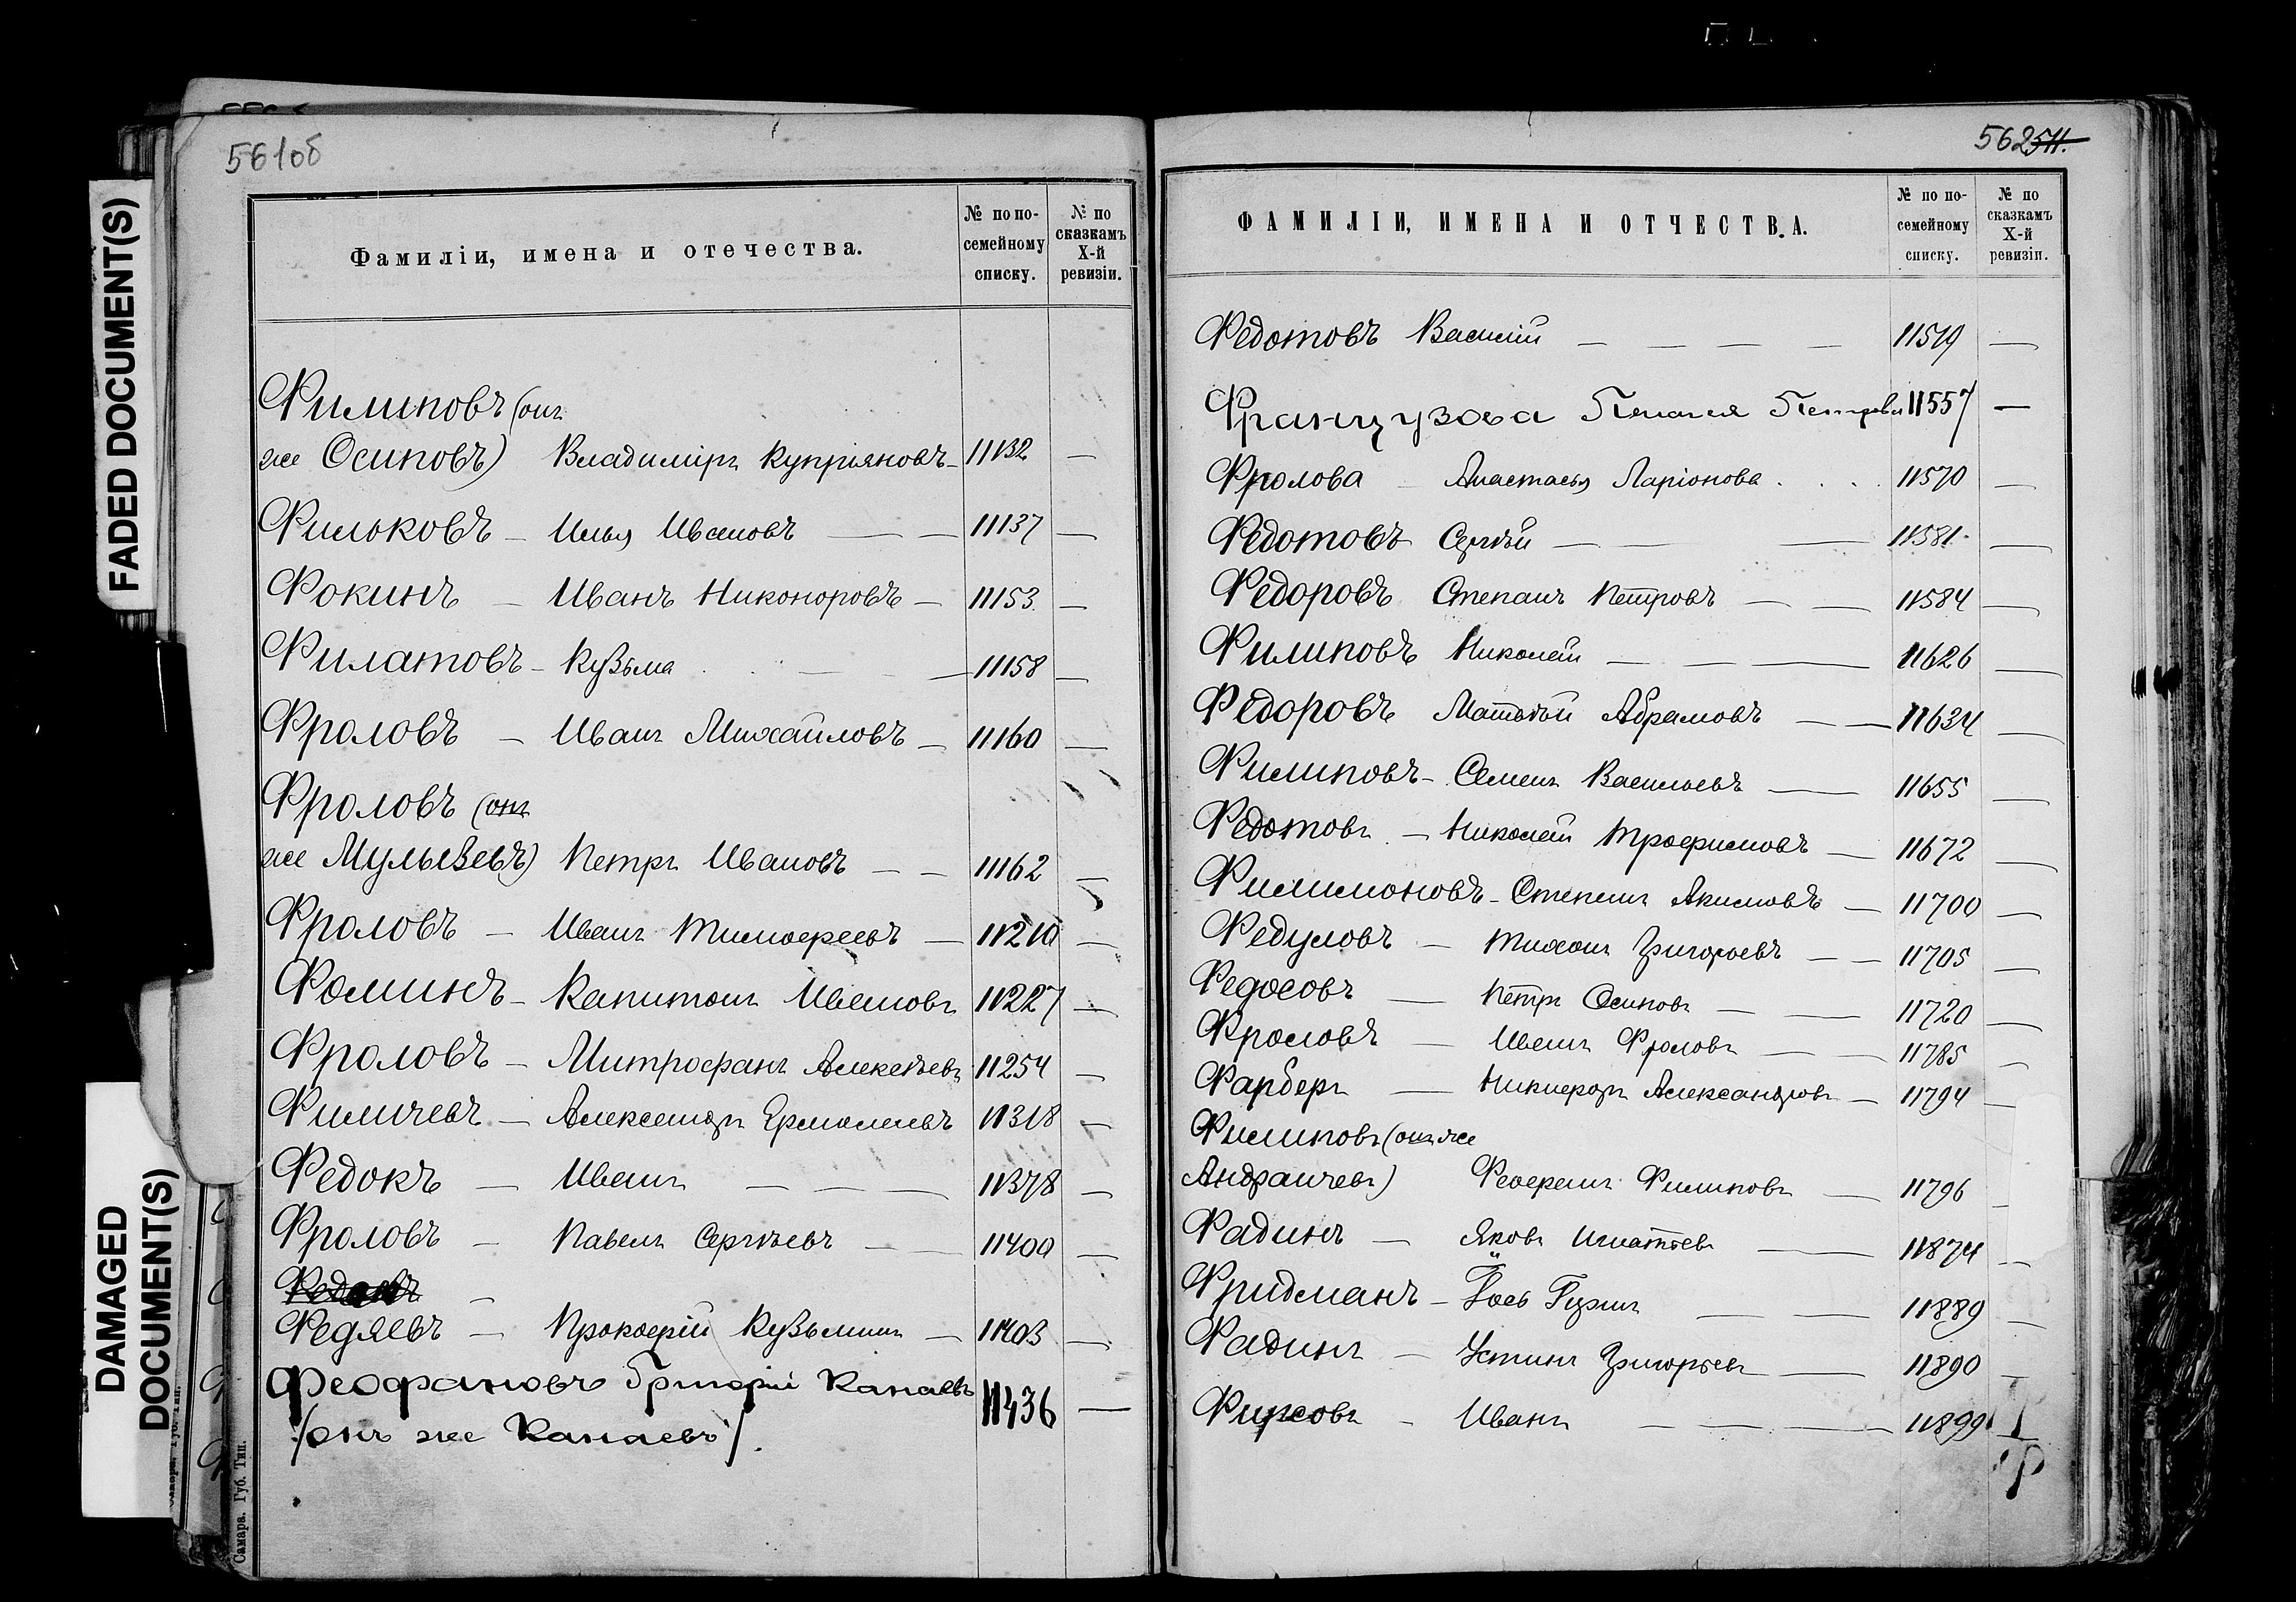 FADED DOCUMENT(S)
DAMAGED
DOCUMENT(S)
561об
Фамиліи, имена и отечества.
№ по по-
семейному
списку.
№ по
сказкамъ
X-й
ревизіи.
Филиповъ (онъ
же Осиповъ) Владиміръ Купріяновъ 11132 —
Фильковъ — Илья Ивановъ — — 11137 —
Фокинъ — Иванъ Никоноровъ — 11153. —
Филатовъ — Кузьма — — 11158 —
Фроловъ — Иванъ Михайловъ — 11160 —
Фроловъ (онъ
же Мулызевъ) Петръ Ивановъ — — 11162 —
Фроловъ — Иванъ Тимофеевъ — 11210 —
Фоминъ — Капитонъ Ивановъ 11227 —
Фроловъ — Митрофанъ Алексѣевъ 11254 —
Филичевъ — Александръ Ермолаевъ 11318 —
Федокъ — Иванъ — — — 11378 —
Фроловъ — Павелъ Сергѣевъ — — 11400 —
Федяевъ — Прокофій Кузьминъ — 11403 —
Феофановъ Григорій Канаевъ 11436 —
/онъ же Канаевъ/.
Самара. Губ. Тип.
562 511.
ФАМИЛІИ, ИМЕНА И ОТЧЕСТВ.А.
№ по по-
семейному
списку.
№ по
сказкамъ
X-й
ревизіи.
Федотовъ Василій — — — — 11519 —
Французова Пелагея Петрова 11557 —
Фролова — Анастасья Ларіонова . . . 11570 —
Федотовъ Сергѣй — — — 11581. —
Федоровъ Степанъ Петровъ — — 11584 —
Филиповъ Николай — — — 11626 —
Федоровъ Матвѣй Абрамовъ — — 11634 —
Филиповъ — Семенъ Васильевъ — 11655 —
Федотовъ — Николай Трофимовъ — 11672 —
Филимоновъ — Степанъ Акимовъ — 11700 —
Федуловъ — Тихонъ Григорьевъ — — 11705 —
Федосовъ — Петръ Осиповъ — — 11720 —
Фроловъ — Иванъ Фроловъ — — 11785 —
Фарберъ — Никифоръ Александровъ — 11794 —
Филиповъ (онъ же
Андраичевъ) Феофанъ Филиповъ — 11796 —
Фадинъ — Яковъ Игнатьевъ — 11874 —
Фридманъ — 11889 —
Фадинъ — Устинъ Григорьевъ — 11890 —
Фирсовъ — Иванъ — — — 11899